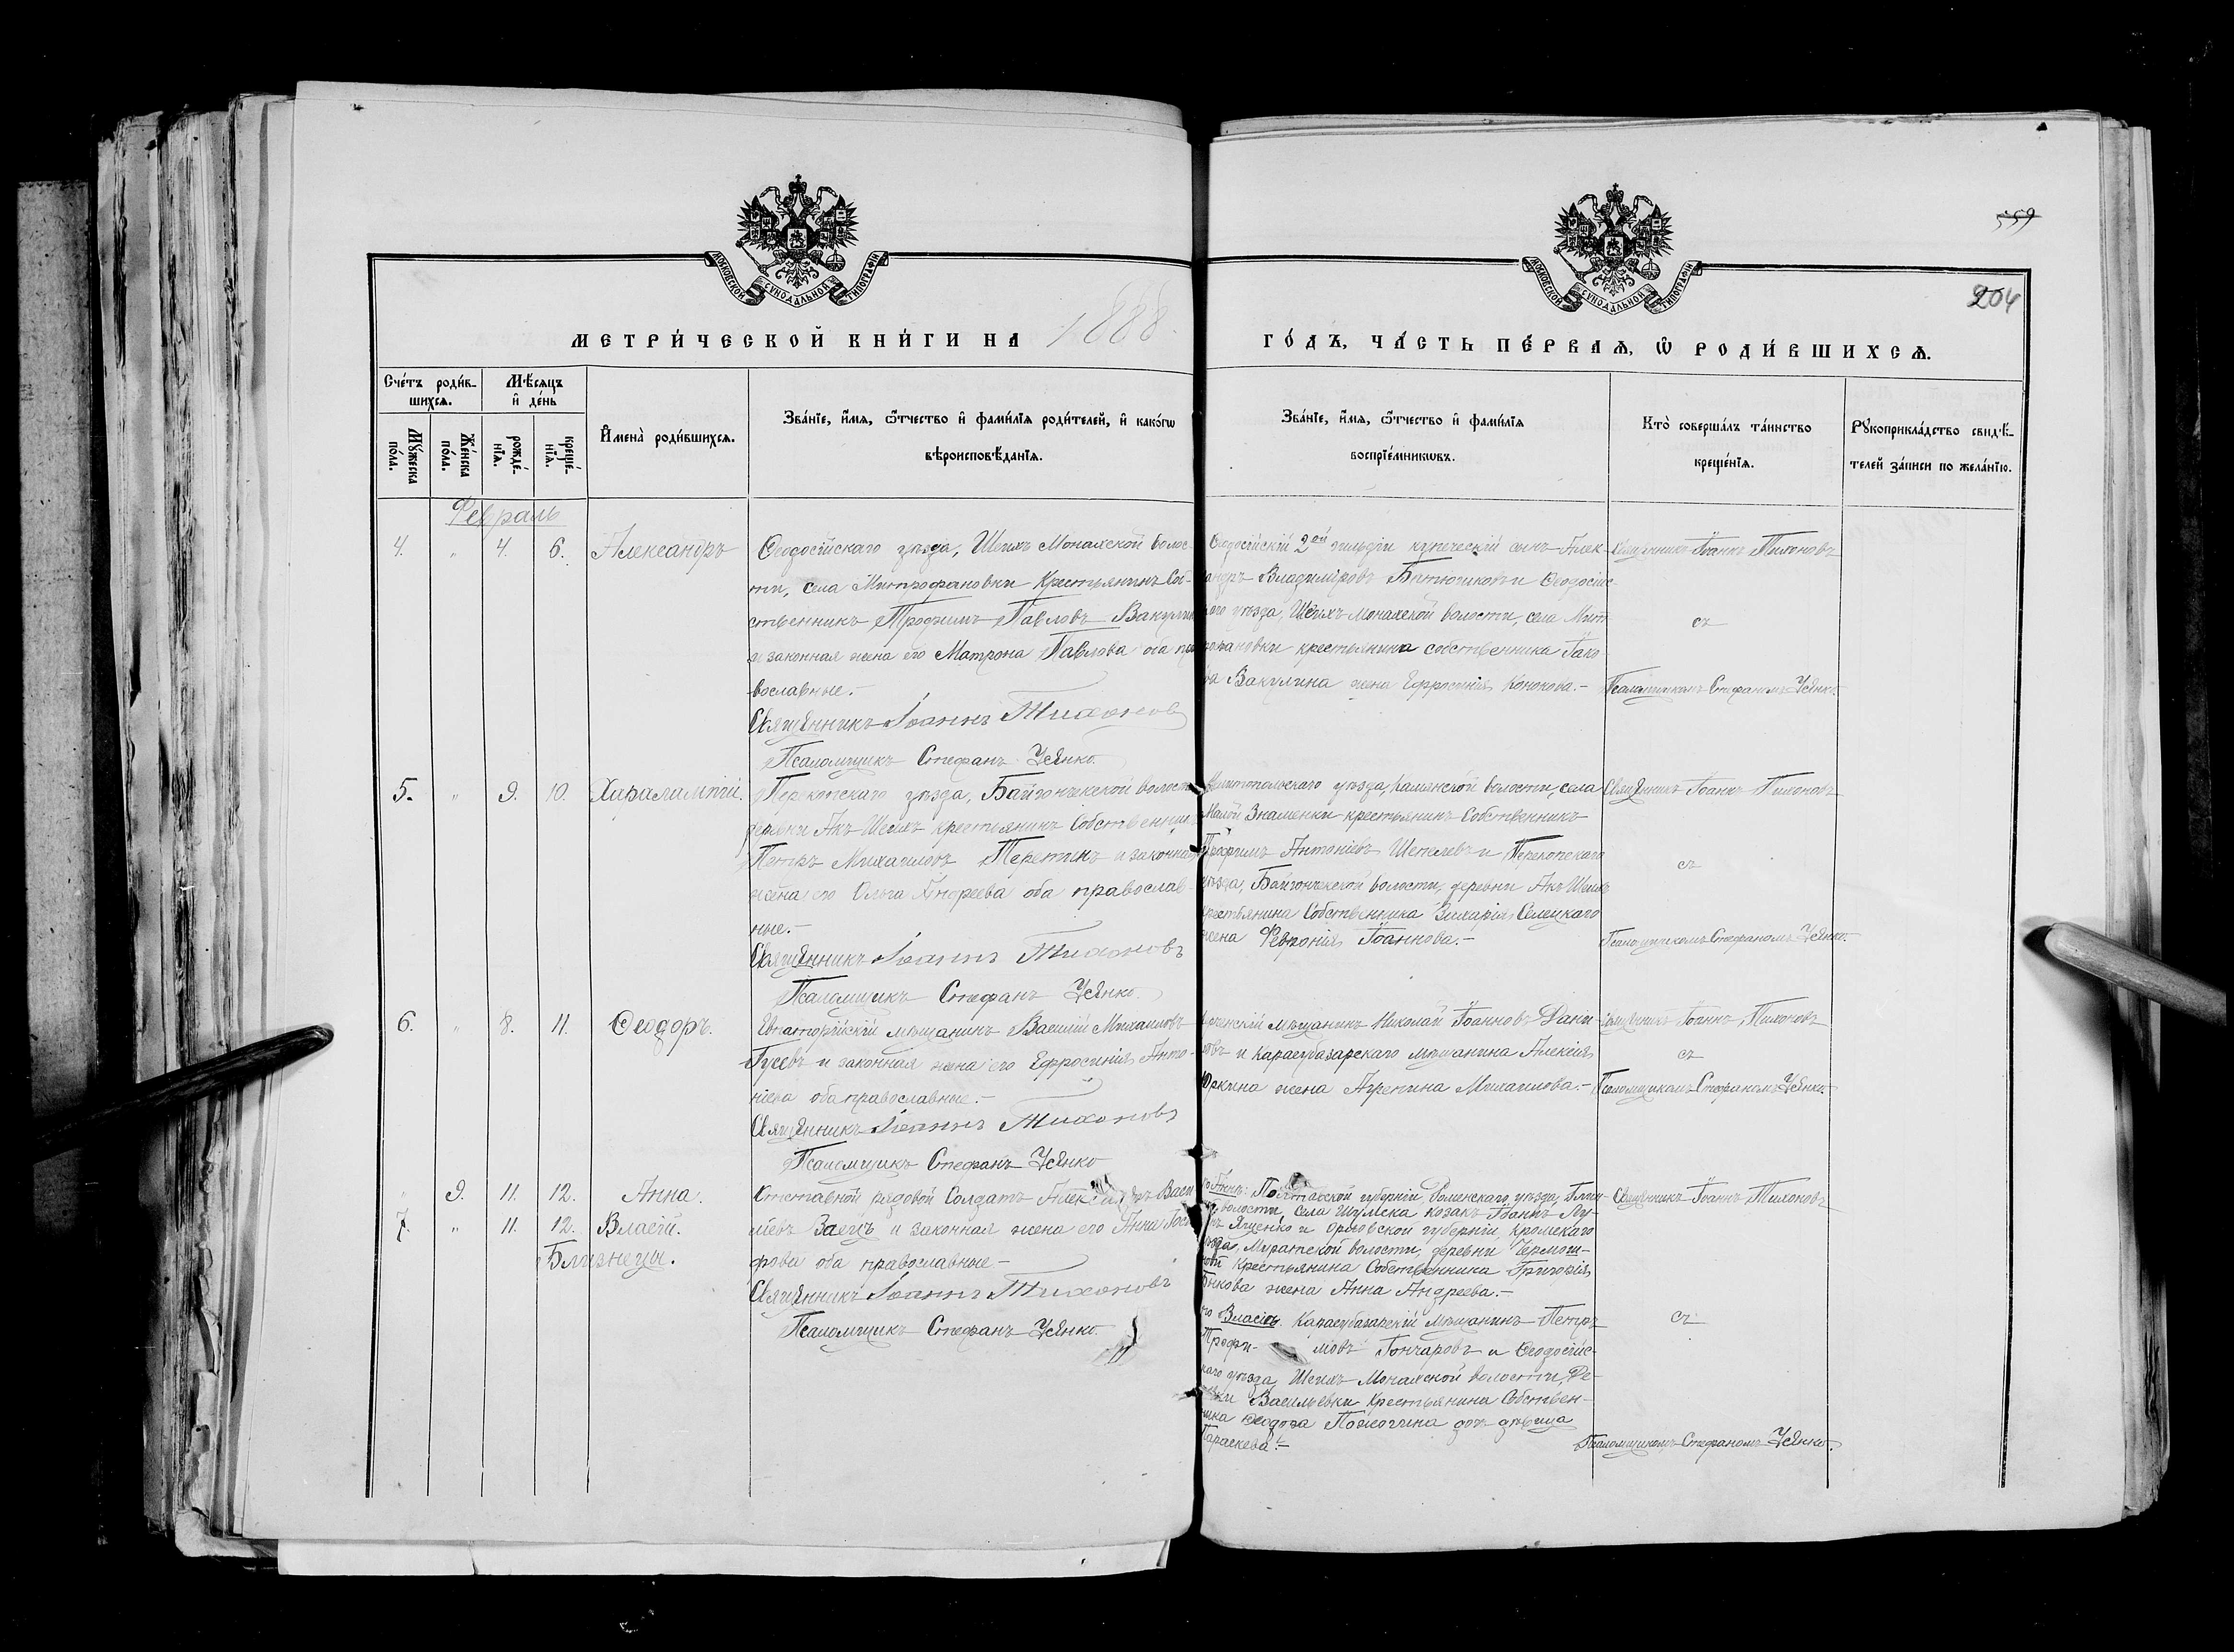 559
204
МОСКОВСКОЙ СѴНОДАЛЬНОЙ ТИПОГРАФІИ
МОСКОВСКОЙ СѴНОДАЛЬНОЙ ТИПОГРАФІИ
МЕТРИ́ЧЕСКОЙ КНИ́ГИ НА 1888 ГО́ДЪ, ЧА́СТЬ ПЕ́РВАѦ, Ѽ РОДИ́ВШИХСѦ.
Сче́тъ роди́в-
шихсѧ.
Мѣ́сѧцъ
и҆ де́нь
Мꙋ́жеска
по́ла.
Же́нска
по́ла.
рожде́-
нїѧ.
креще́-
нїѧ.
И҆мена̀ роди́вшихсѧ.
Зва́нїе, и҆́мѧ, ѻ҆́тчество и҆ фами́лїѧ роди́телей, и҆ како́гѡ
вѣроисповѣ́данїѧ.
Зва́нїе, и҆́мѧ, ѻ҆́тчество и҆ фами́лїѧ
воспрїе́мникѡвъ.
Кто̀ соверша́лъ та́инство
креще́нїѧ.
Рꙋкоприкла́дство свидѣ́-
телей за́писи по жела́нїю.
Февраль
4. " 4. 6. Александръ
Ѳеодосійскаго уѣзда, Шеихъ Монахской волос-
ти, села Митрофановки Крестьянинъ Соб-
ственникъ Трофимъ Павловъ Вакулинъ
и законная жена его Матрона Павлова оба пра-
вославные.-
Священникъ Іоаннъ Тихоновъ
Псаломщикъ Стефанъ Усенко.
Ѳеодосійскій 2ой гильдіи купеческій сынъ Алек-
сандръ Владиміровъ Битюшковъ и Ѳеодосійс-
каго уѣзда, Шеихъ Монахской волости, села Мит-
рофановки крестьянина собственника Іако-
ва Вакулина жена Ефросинія Кононова.-
Священникъ Іоаннъ Тихоновъ
съ
Псаломщикомъ Стефаномъ Усенко.
5. " 9. 10. Харалампій.
Перекопскаго уѣзда, Байгончекской волости
деревни Акъ Шеихъ крестьянинъ Собственникъ
Петръ Михаиловъ и законная
жена его Ольга Андреева оба православ-
ные.-
Священникъ Іоаннъ Тихоновъ
Псаломщикъ Стефанъ Усенко.
Мелитопольскаго уѣзда, Каменской волости, села
Малой Знаменки крестьянинъ Собственникъ
Трофимъ Антоніевъ Шепелевъ и Перекопскаго
уѣзда, Байгончекской волости, деревни Акъ Шеихъ
крестьянина Собственника Захарія Селецкаго
жена Феврония Іоаннова.-
Священникъ Іоаннъ Тихоновъ
съ
Псаломщикомъ Стефаномъ Усенко.
6. " 8. 11. Ѳеодоръ.
Евпаторійскій мѣщанинъ Василій Михаиловъ
Гусевъ и законная жена его Ефросинія Анто-
ніева оба православные.-
Священникъ Іоаннъ Тихоновъ
Псаломщикъ Стефанъ Усенко
мѣщанинъ Николай Іоанновъ Дани-
ловъ и Карасубазарскаго мѣщанина Алексія
Юркина жена Агрепина Михаилова.-
Священникъ Іоаннъ Тихоновъ
съ
Псаломщикомъ Стефаномъ Усенко.
" 9. 11. 12. Анна.
7. " 11. 12. Власій.
Близнецы.
Отставной рядовой Солдатъ Александръ Васи-
льевъ Заецъ и законная жена его Анна
оба православные-
Священникъ Іоаннъ Тихоновъ
Псаломщикъ Стефанъ Усенко.
Анны: Полтавской губерніи, Роменскаго уѣзда,
волости, села Шумска козакъ Іоаннъ
Ященко и Орловской губерніи, Кромскаго
уѣзда, волости, деревни
Крестьянина Собственника Григорія
жена Анна Андреева.-
Власія. Карасубазарскій мѣщанинъ Петръ
Трофи- мовъ Гончаровъ и Ѳеодосійс-
каго уѣзда, Шеихъ Монахской волости, де-
ревни Васильевки Крестьянина Собствен-
ника Ѳеодора дочь дѣвица
Параскева.-
Священникъ Іоаннъ Тихоновъ
съ
Псаломщикомъ Стефаномъ Усенко.